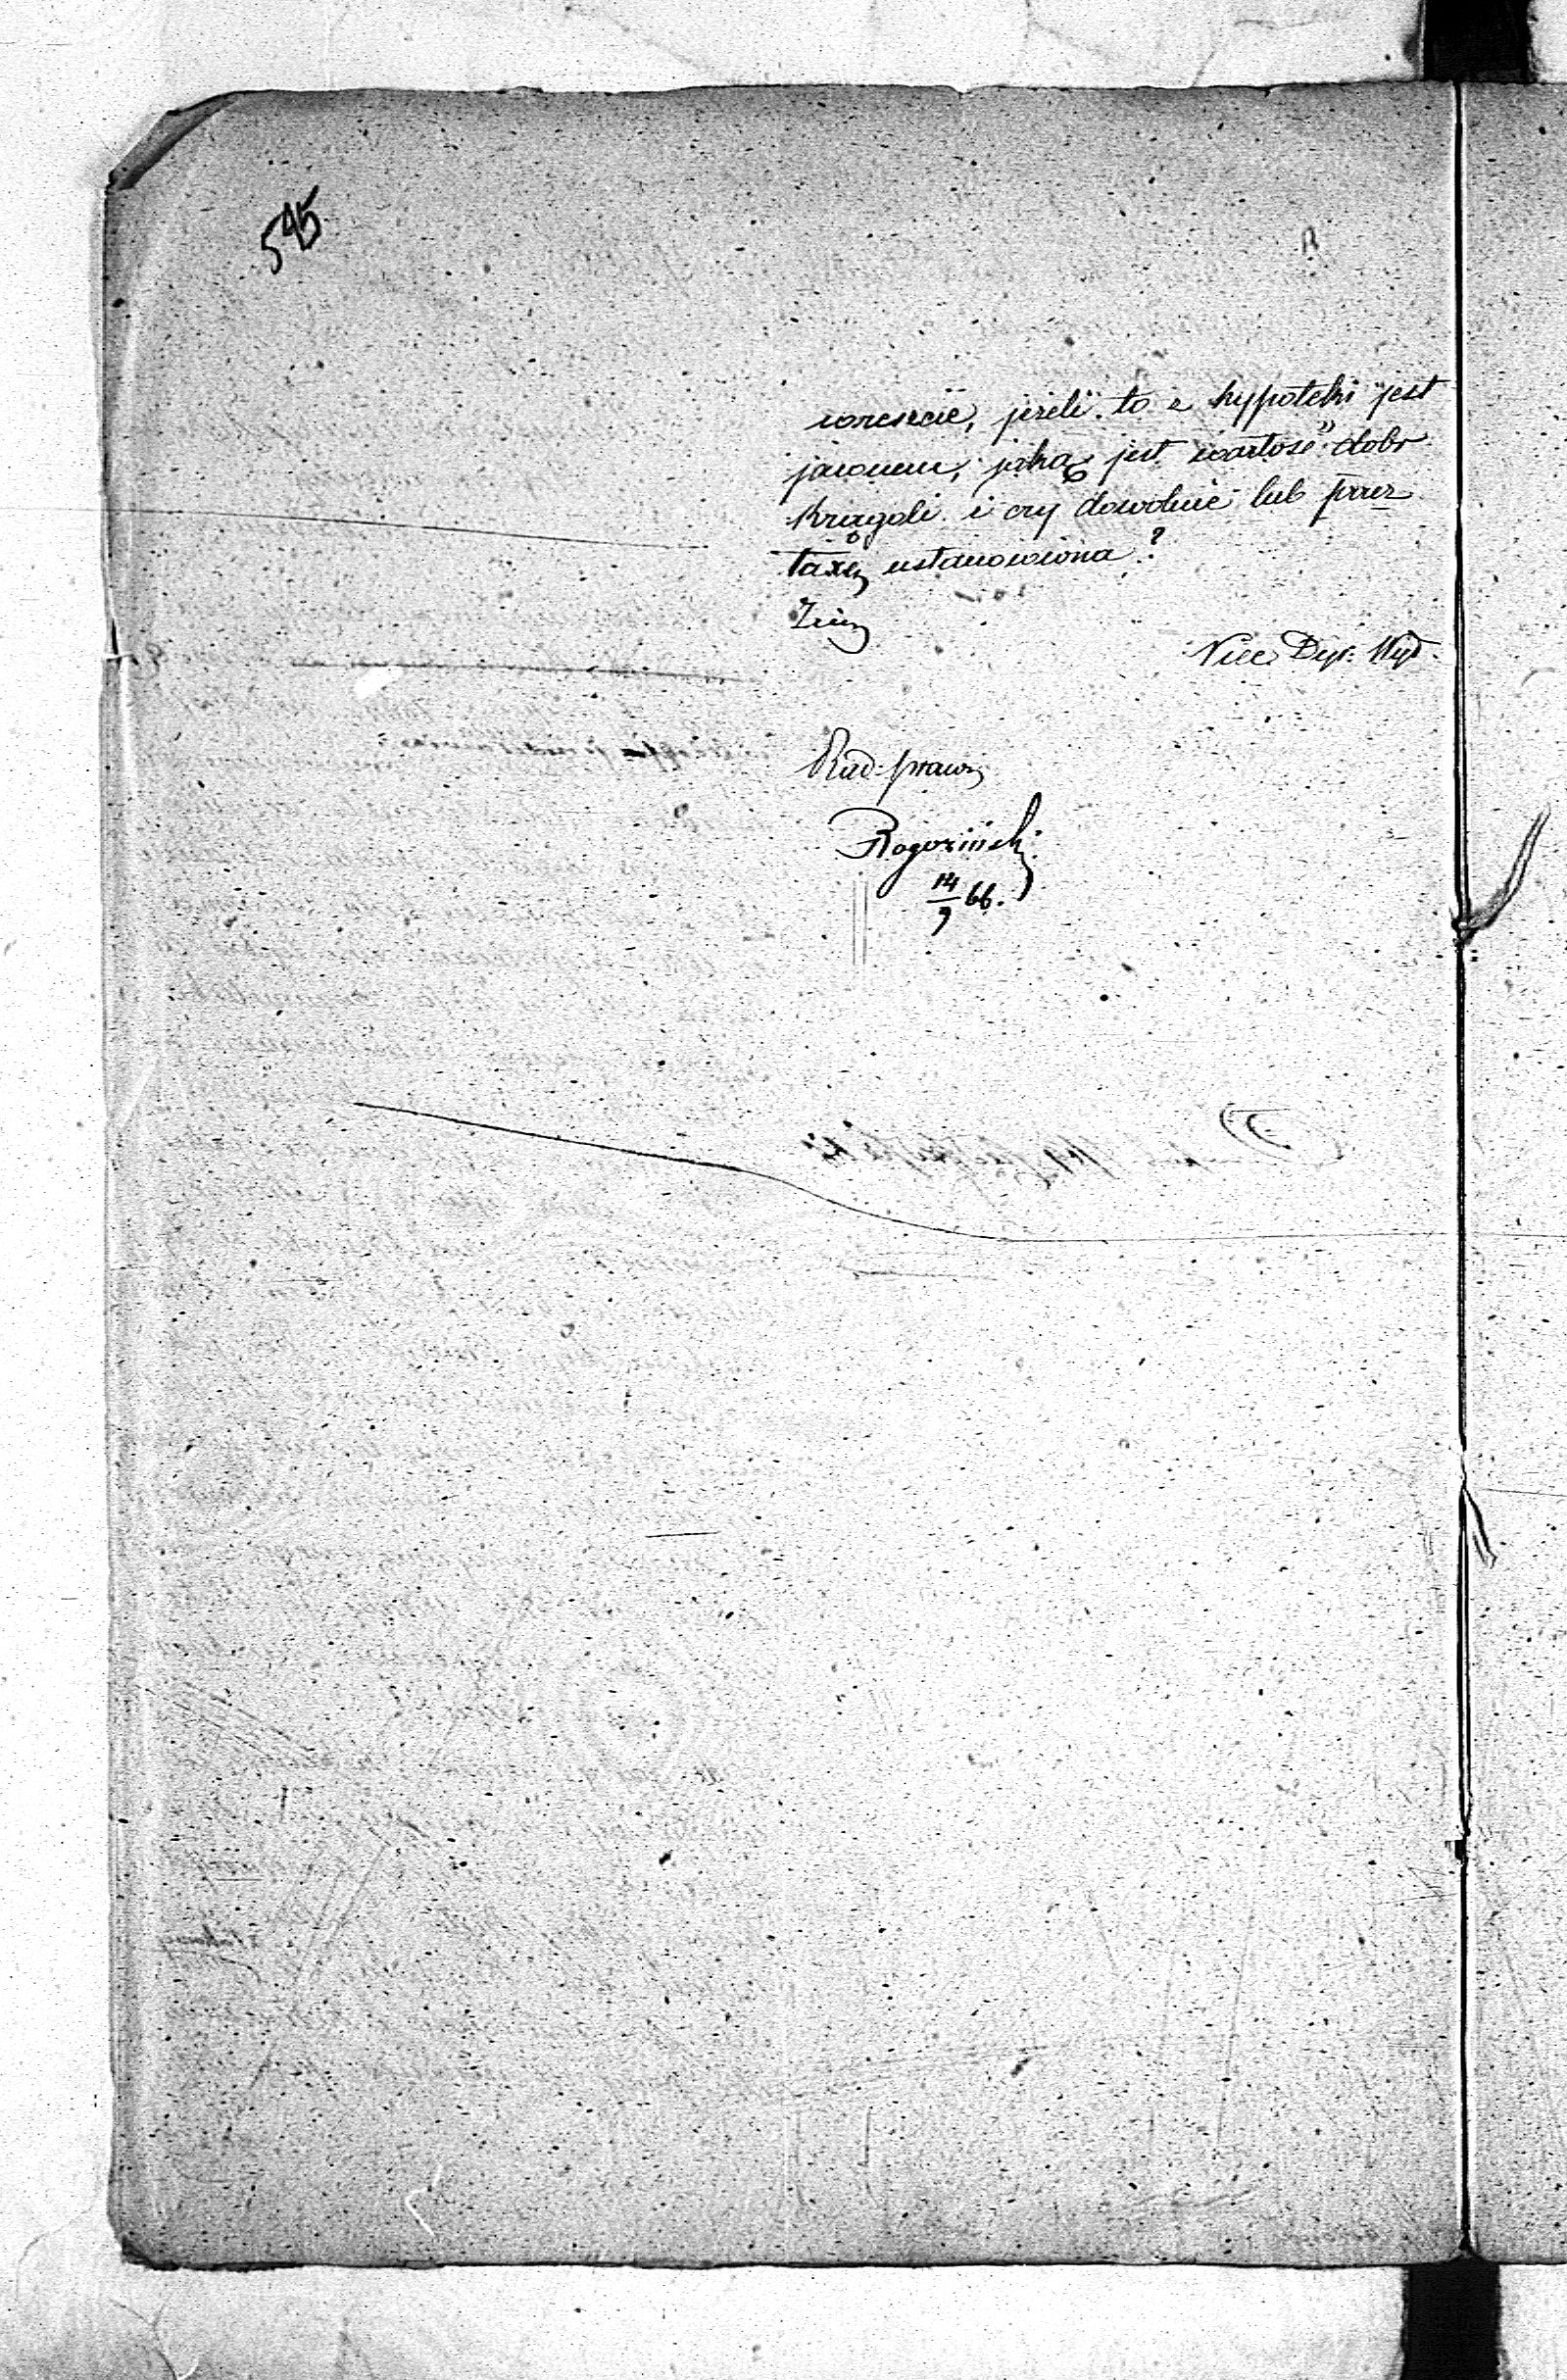 545
wreszcie, jeżeli to z hypoteki jest
jawnem, jaką jest wartość dobr
i czy dowolnie lub przez
taxę ustanowiona?
Vice Dyr. Wyd.
Rad. praw.
Rogoziński
14/9 66.